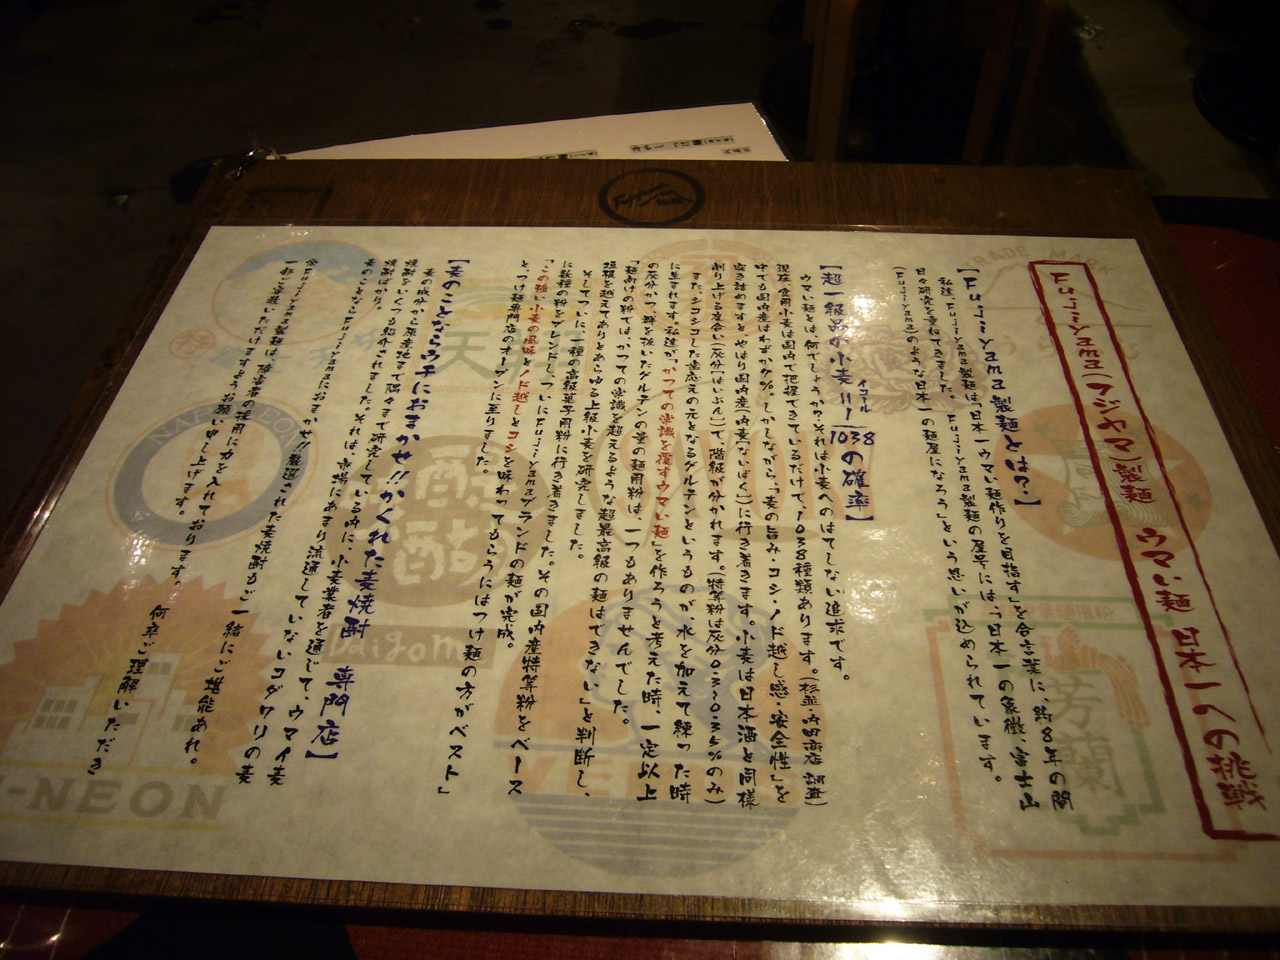 Fujiyama(フジヤマ)製麺 ウマい麺 日本一への挑戦
【Fujiyama製麺とは?】
Fujiyama製麺は「日本一ウマい麺作りを目指す」を合言葉に 約8年の間
日々研究を重ねてきました。 Fujiyama製麺の屋号には、「日本一の象徴・富士山
(Fujiyama)のような日本一の麺屋になろう」という思いが込められています。
【超一級品の小麦=1/1038の確率】
イコール
ウマい麺とは何でしょうか?それは小麦へのはてしない追求です。
現在、食用小麦は国内で把握できているだけで、1038種類あります。
中でも国内産はわずか7%。しかしながら、「麦の旨み・コシ・ノド越し感・安全性」を
突き詰めますと、やはり国内産(内麦[ないばく])に行き着きます。小麦は日本酒と同様
削り上げる度合い(灰分[はいぶん])で、階級が分かれます。(特等粉は灰分0.3〜0.35%のみ)
また、シコシコした歯応えの元となるグルテンというものが、水を加えて練った時
に生まれます。私達が、かつての常識を覆すウマい麺」を作ろうと考えた時、一定以上
の灰分かつ、群を抜いたグルテンの量の麺用粉は、一つもありませんでした。
「麺向けの粉では、かつての常識を超えるような超最高級の麺はできない」と判断し、
垣根を越えてありとあらゆる上級小麦を研究しました。
そしてついに、一種の高級菓子用粉に行き着きました。その国内産特等粉をベース
に数種の粉をブレンドし、ついにFujiyamaブランドの麺が完成。
「この強い小麦の風味とノド越しとコシを味わってもらうにはつけ麺の方がベスト」
と、つけ麺専門店のオープンに至りました。
【麦のことならウチにおまかせ!!かくれた麦焼酎 専門店】
麦の成分から原産地まで隅々まで研究している内に、小麦業者を通じて、ウマイ麦
焼酎をいくつも紹介されました。それは、市場にあまり流通していないコダワリの麦
焼酎ばかり。
麦のことならFujiyamaにおまかせ!!厳選された麦焼酎もご一緒にご堪能あれ。
Fujiyama製麺は、障害者の採用に力を入れております。 何卒ご理解いただき
お願い申し上げます。
NEON
Daigom
天
醍醐
芳蘭
TRADE